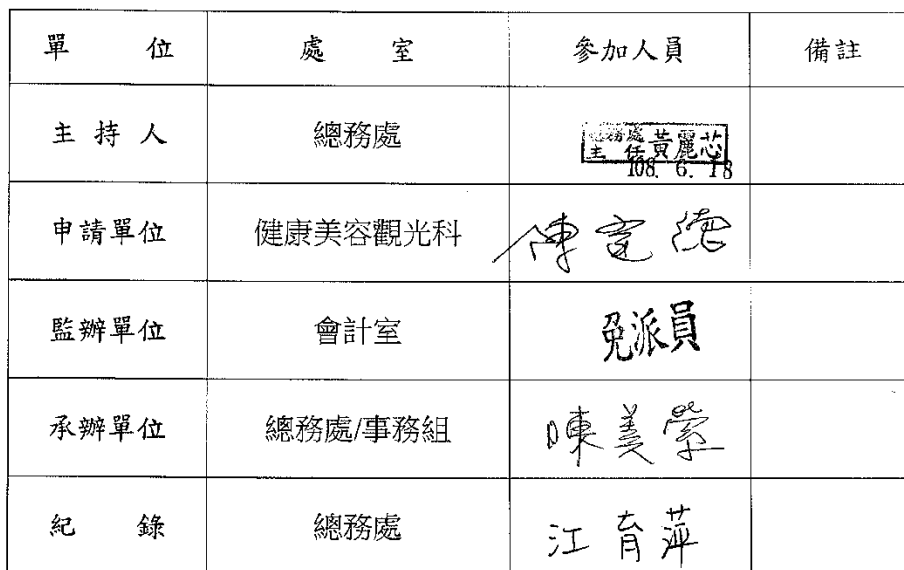 單 位 處 室 參加人員 備註
主持人 總務處 總務處主任 黃麗芯
108. 6. 18
申請單位 健康美容觀光科 陳定德
監辦單位 會計室 免派員
承辦單位 總務處/事務組 陳美縈
紀 錄 總務處 江育萍